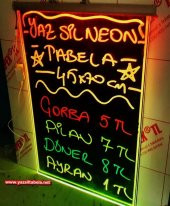 YAZ SİL NEON!
TABELA
45x70 cm
ÇORBA 5 TL
PİLAV 7 TL
DÖNER 8 TL
AYRAN 1 TL
www.yazsiltabela.net